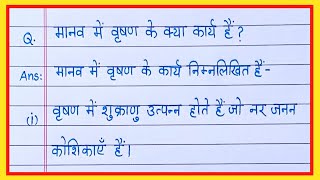 Q. मानव में वृषण के क्या कार्य हैं?
Ans: मानव में वृषण के कार्य निम्नलिखित हैं-
(i) वृषण में शुक्राणु उत्पन्न होते हैं जो नर जनन
कोशिकाएँ हैं।